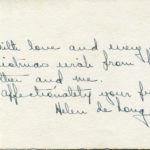 with love and every
Christmas wish from
and me.
affectionately your
Helen de